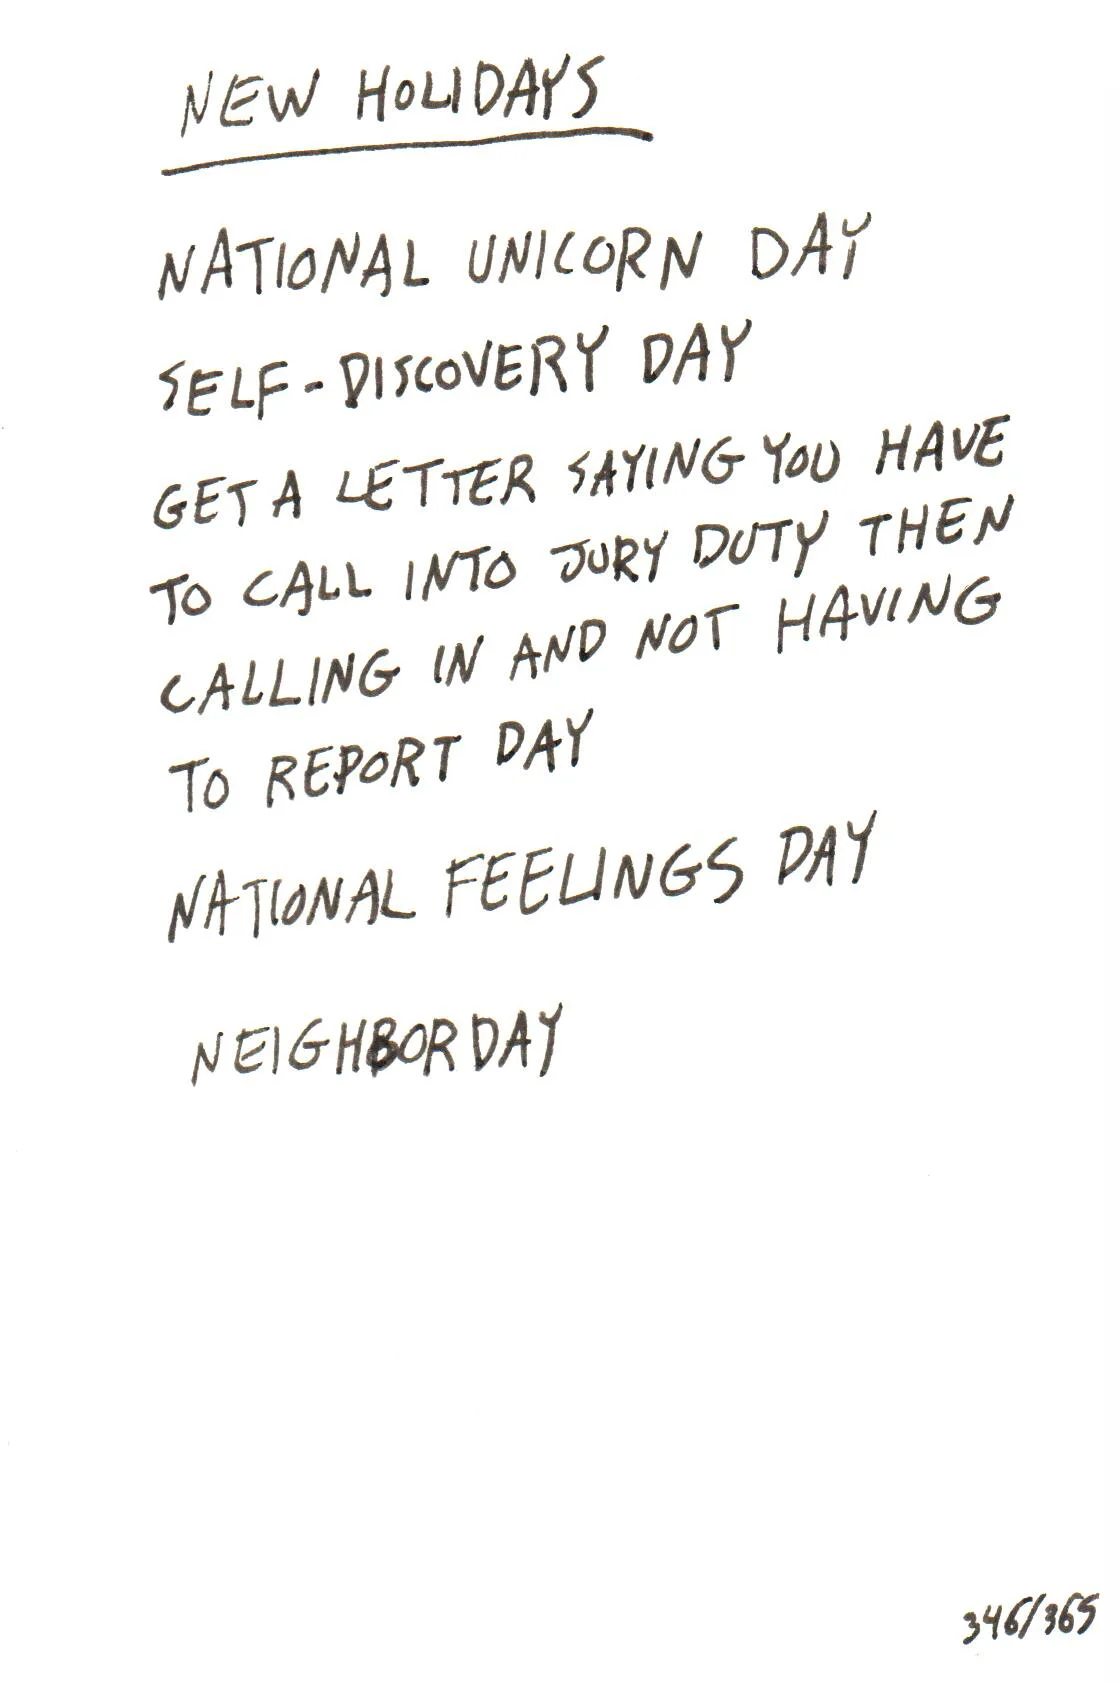 NEW HOLIDAYS
NATIONAL UNICORN DAY
SELF-DISCOVERY DAY
GET A LETTER SAYING YOU HAVE
TO CALL INTO JURY DUTY THEN
CALLING IN AND NOT HAVING
TO REPORT DAY
NATIONAL FEELINGS DAY
NEIGHBOR DAY
346/365